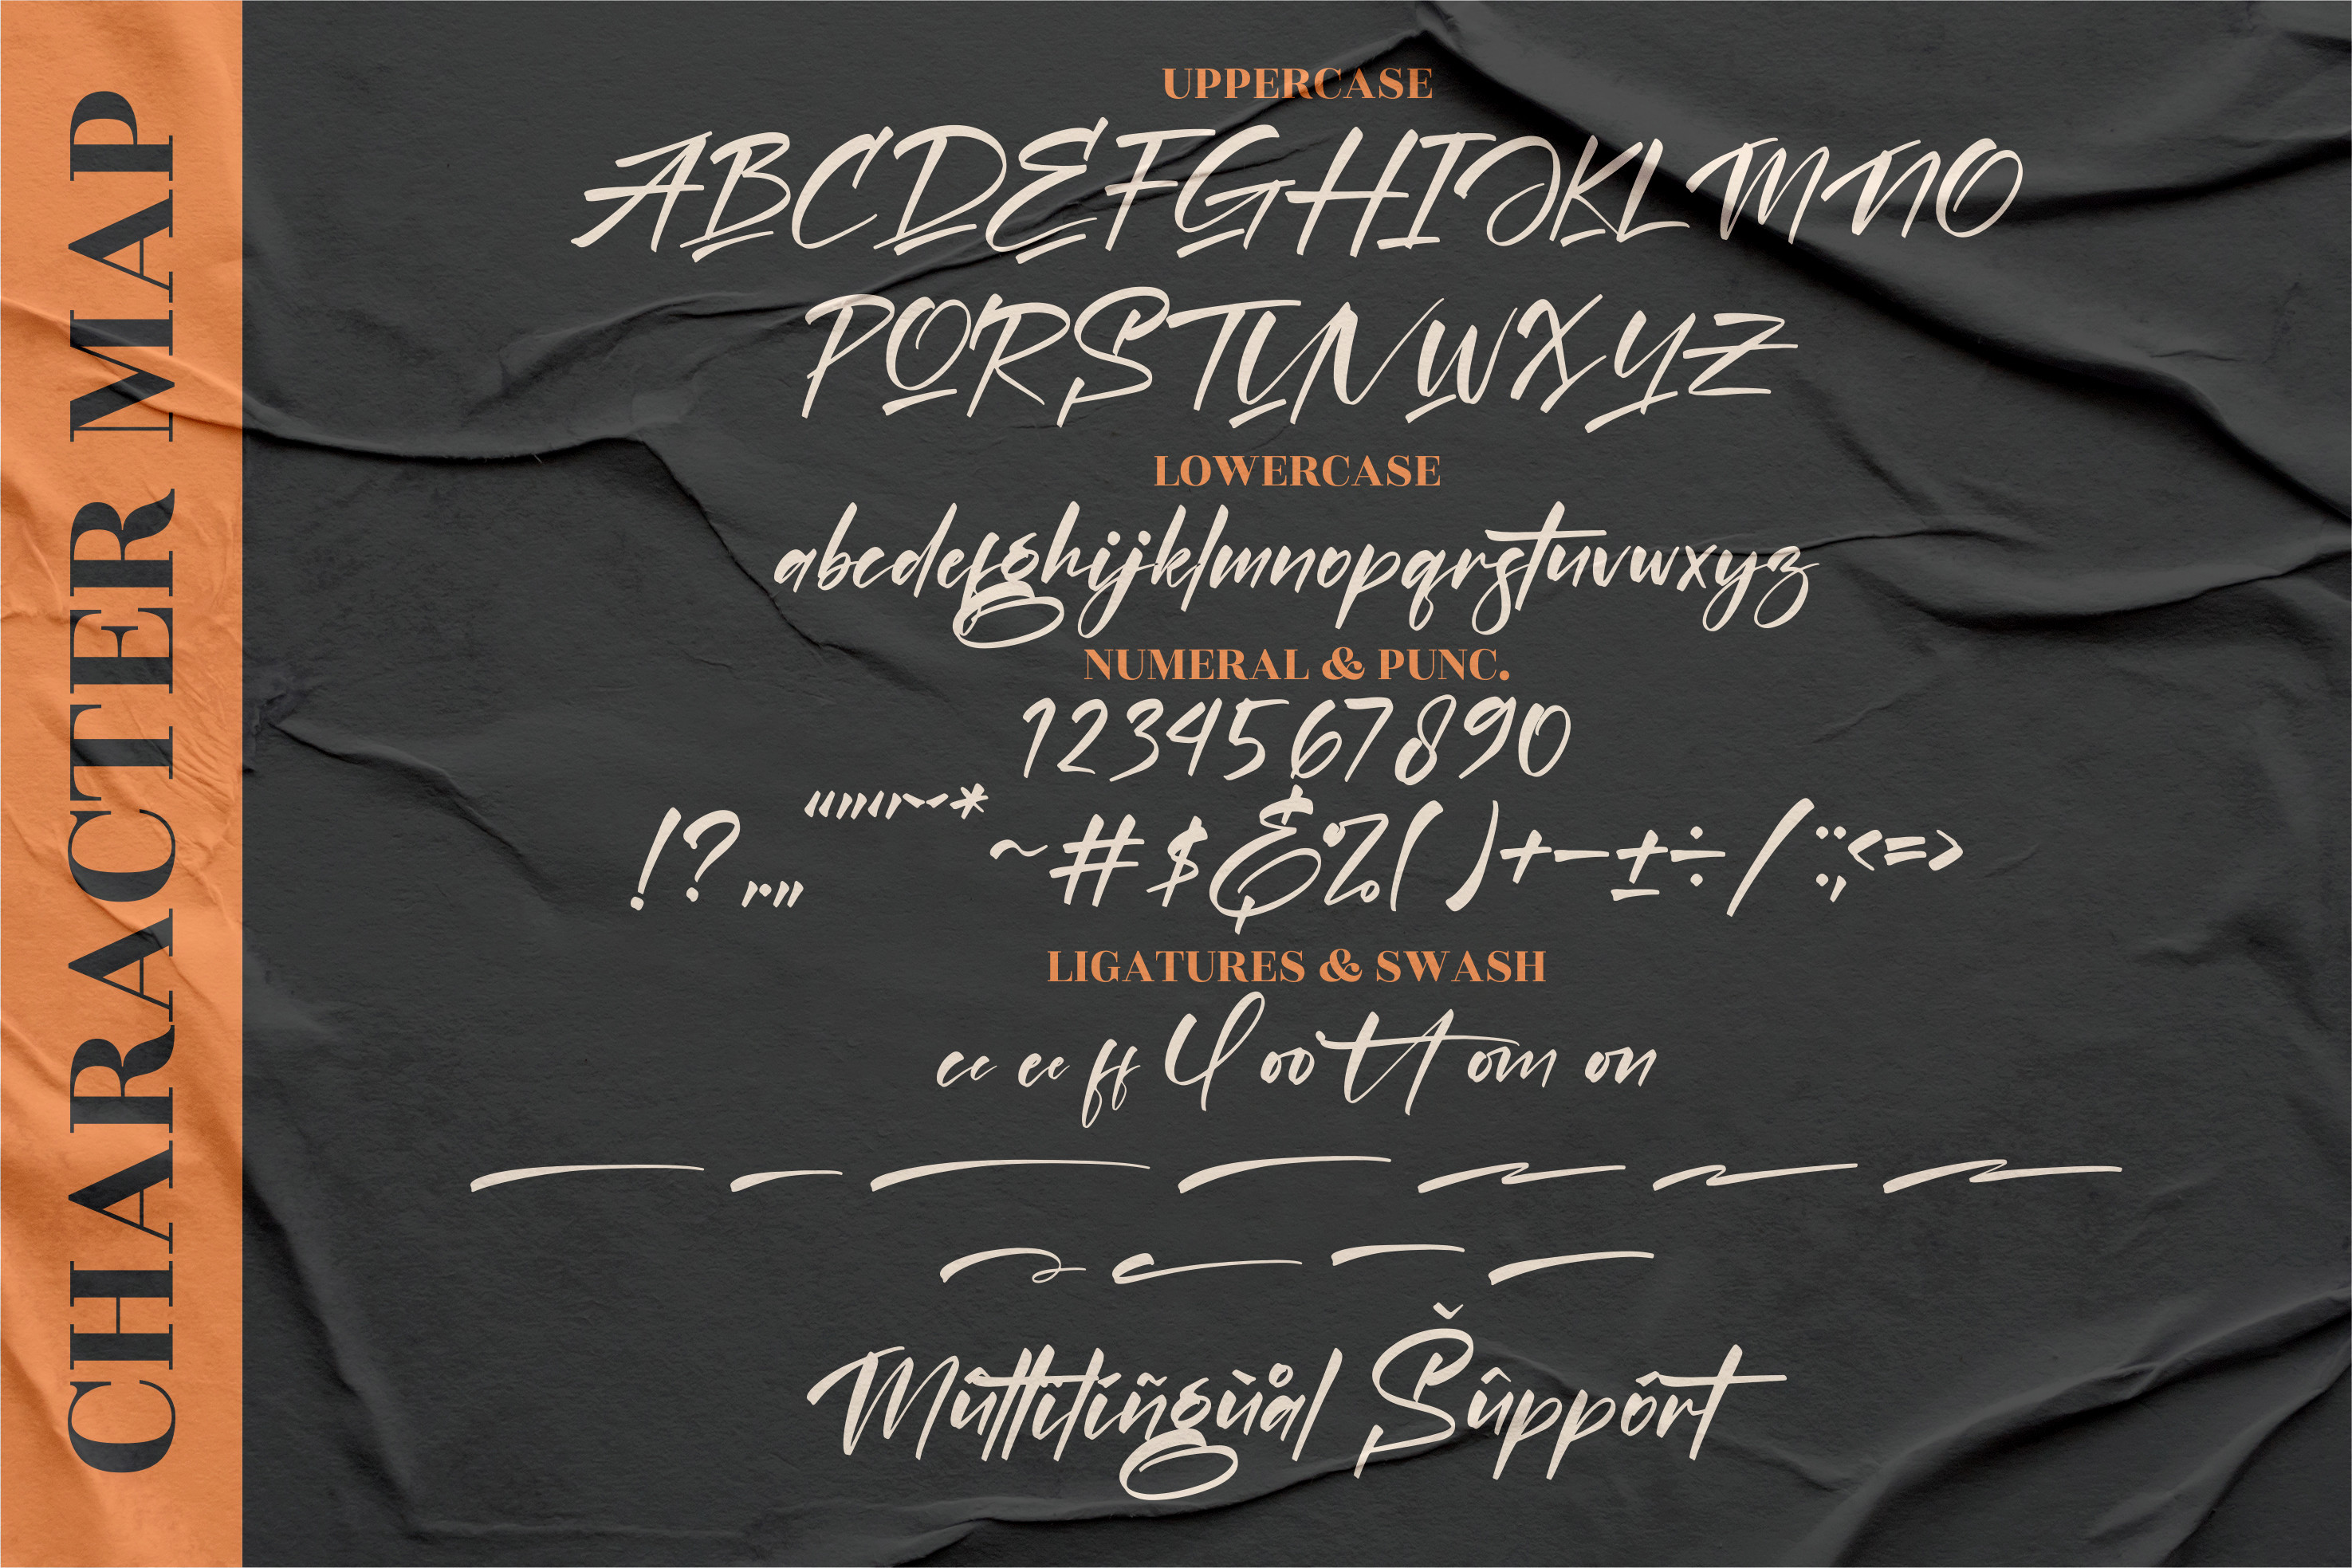 CHARACTER MAP
UPPERCASE
ABCDEFGHIJKLMNO
PQRSTUVWXYZ
LOWERCASE
abcdefghijklmnopqrstuvwxyz
NUMERAL & PUNC.
1234567890
!?.,…„ “”‘’"'* ~#$&%()+−±÷/:;<=>
LIGATURES & SWASH
cc ee ff ll oo tt om on
Mûltilíñgùål Šûppôrt